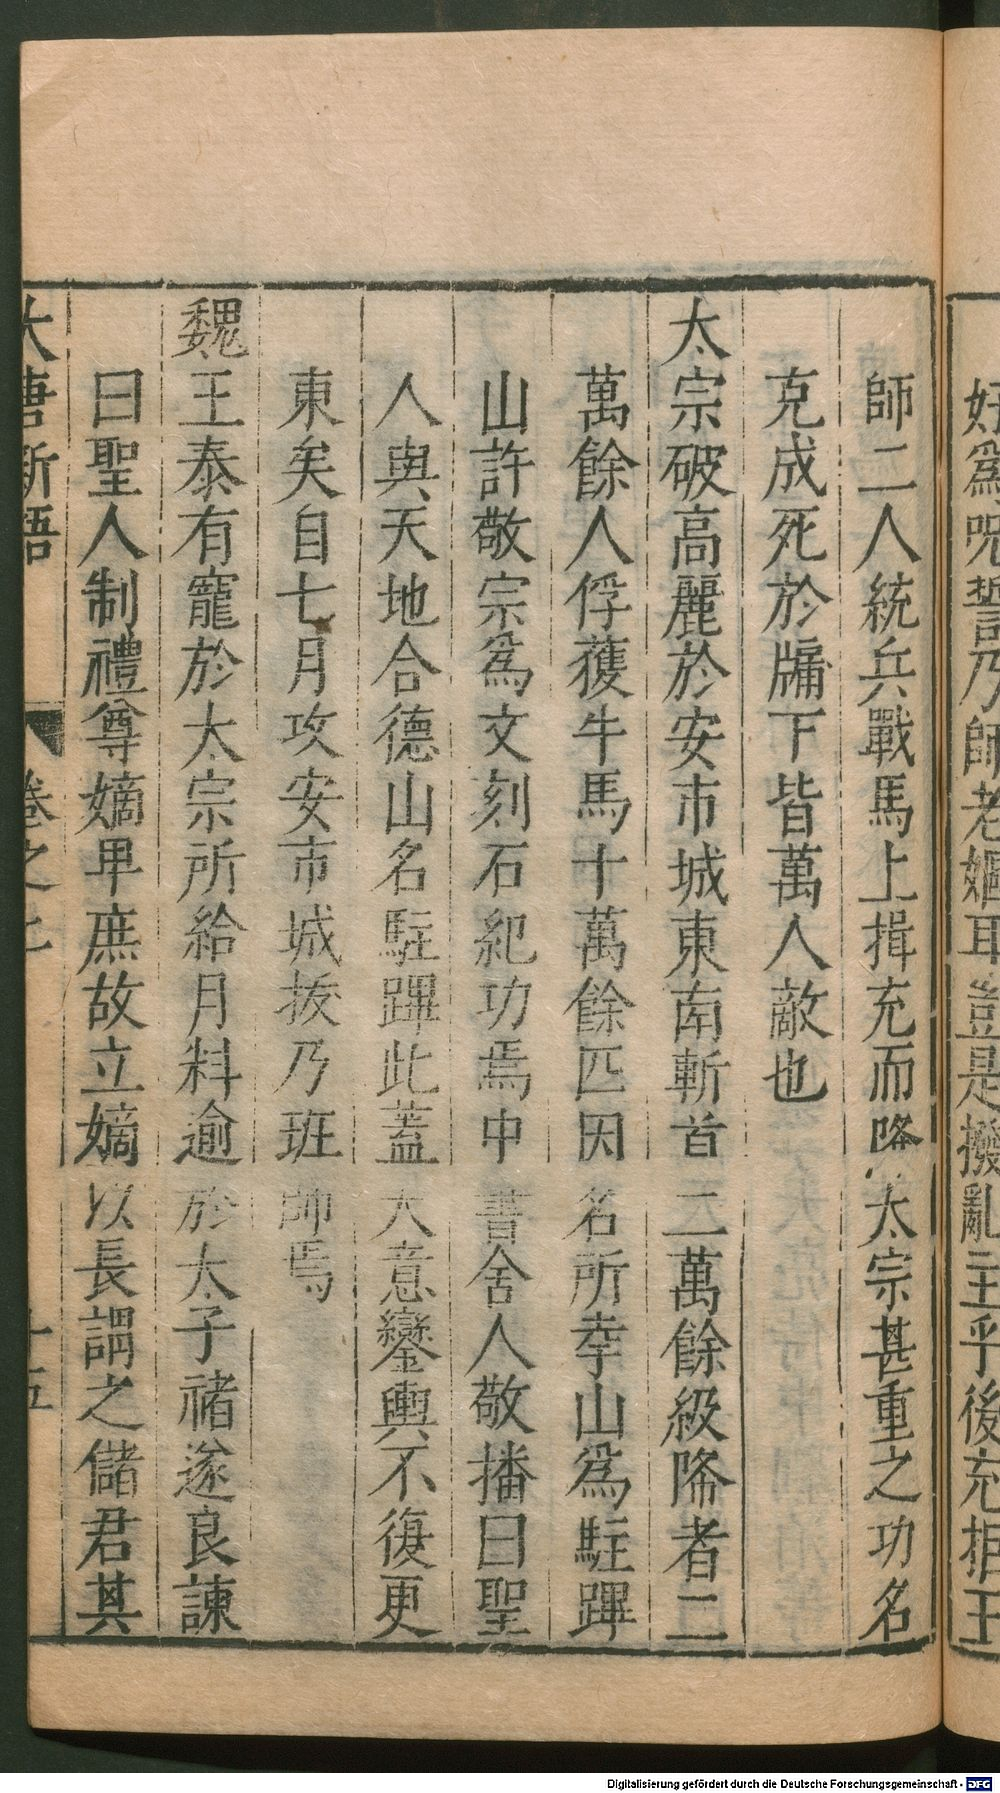 好爲呪誓乃師老嫗耳豈是撥亂主乎後充拒王
師二人統兵戰馬上揖充而降太宗甚重之功名
克成死於牖下皆萬人敵也
太宗破高麗於安市城東南斬首二萬餘級降者二
萬餘人俘獲牛馬十萬餘匹因名所幸山爲駐蹕
山許敬宗爲文刻石紀功焉中書舍人敬播曰聖
人與天地合德山名駐蹕此蓋大意鑾輿不復更
東矣自七月攻安市城拔乃班師焉
魏王泰有寵於太宗所給月料逾於太子禇遂良諫
曰聖人制禮尊嫡卑庶故立嫡以長謂之儲君其
大唐新語 卷之七 十五
Digitalisierung gefördert durch die Deutsche Forschungsgemeinschaft - DFG